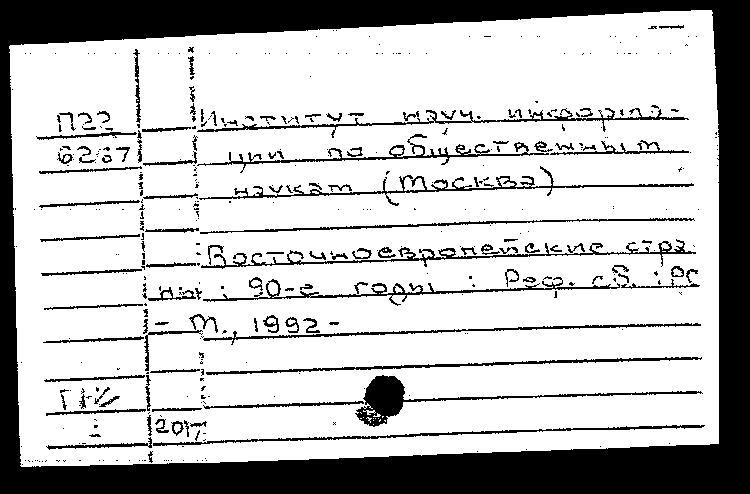 П22 Институт науч. информа-
6267 ции по общественным
наукам (Москва)
Восточноевропейские стра
ны : 90-е годы : Реф. сб. : РС
- М., 1992 -
2017